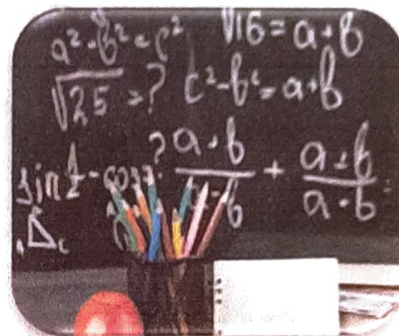 a² - b² = c²   √16 = a + b
√25 = ?   c² - b² = a + b
sin   ?   a + b   +   a + b
b   a - b   =